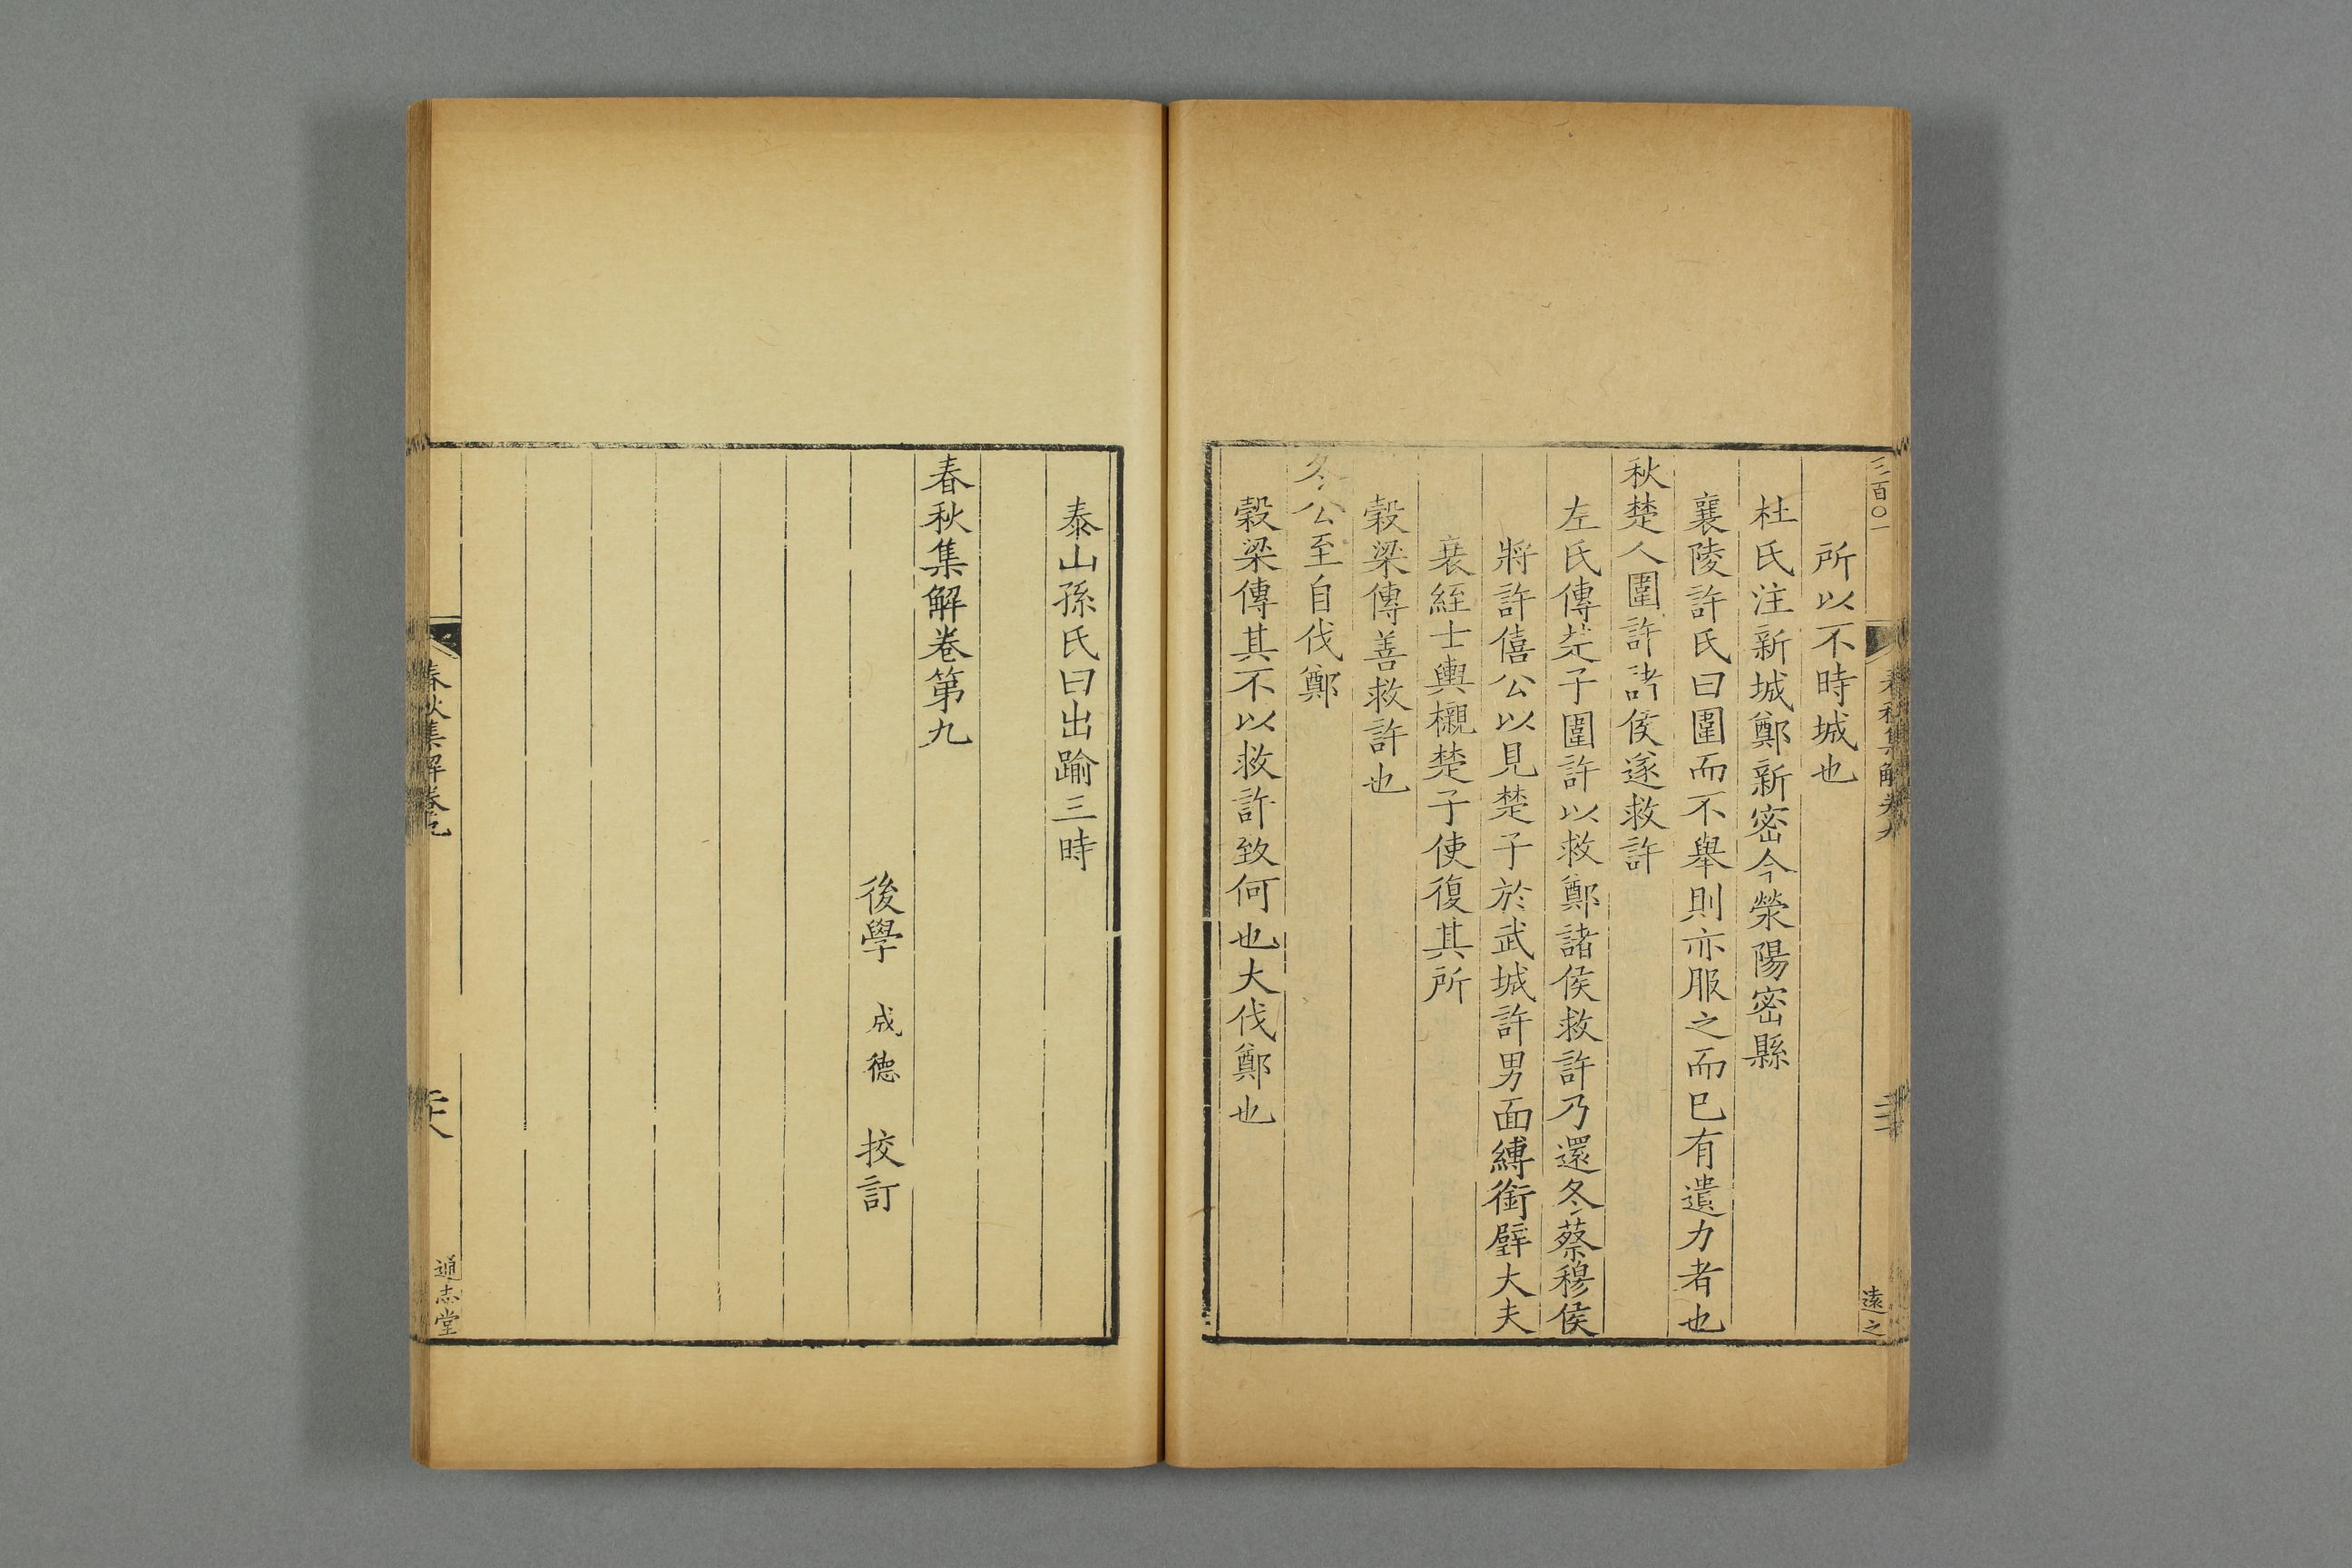 三百〇一
春秋集解卷九
遠之
所以不時城也
杜氏注新城鄭新密今滎陽密縣
襄陵許氏曰圍而不舉則亦服之而巳有遺力者也
秋楚人圍許諸侯遂救許
左氏傳楚子圍許以救鄭諸侯救許乃還冬蔡穆侯
將許僖公以見楚子於武城許男面縛銜璧大夫
衰絰士輿櫬楚子使復其所
穀梁傳善救許也
冬公至自伐鄭
穀梁傳其不以救許致何也大伐鄭也
泰山孫氏曰出踰三時
春秋集解卷第九
後學 成德 挍訂
春秋集解卷九
通志堂